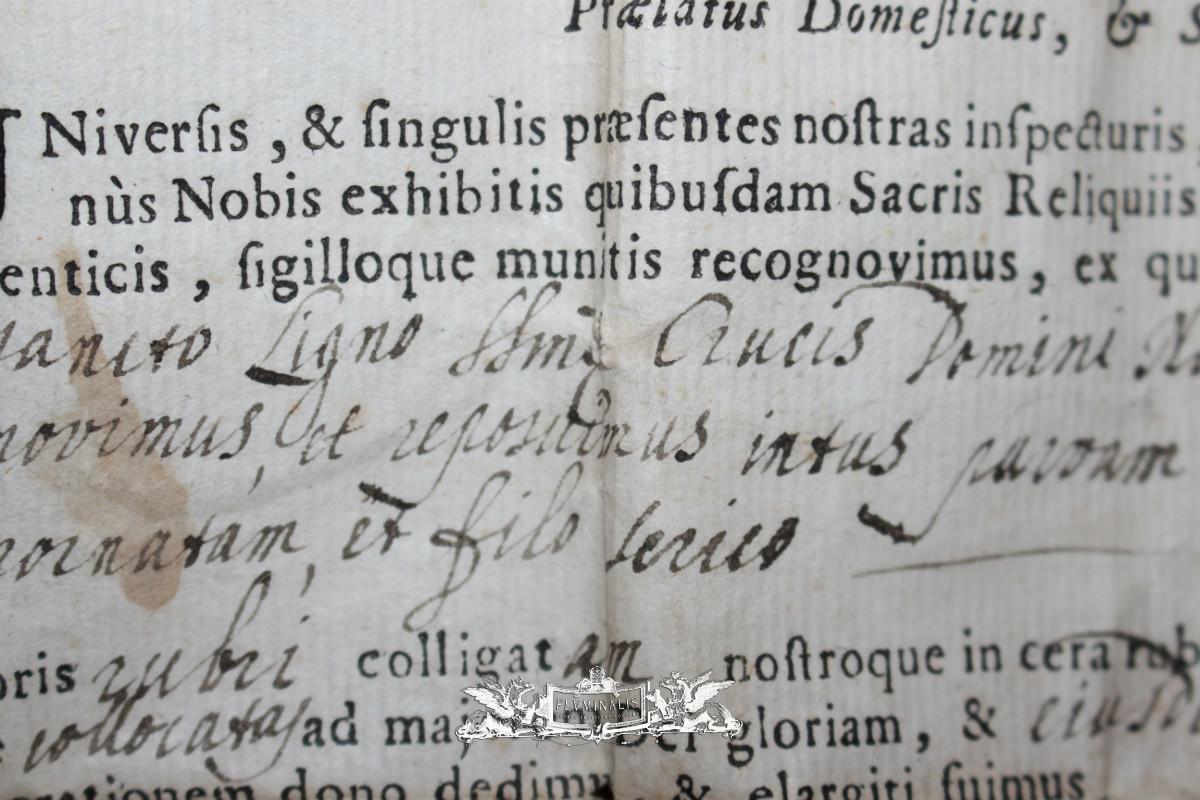 Prælatus Domeſticus, & S
UNiverſis, & ſingulis præſentes noſtras inſpecturis
nùs Nobis exhibitis quibuſdam Sacris Reliquiis
enticis, ſigilloque munitis recognovimus, ex qu
Ligno SSmę Crucis Domini
novimus, et reposuimus intus parvam
ornatam, et filo serico
oris rubri colligatam noſtroque in cera rub
collocatas ad maj Dei gloriam, & eiusd
rationem dono dedimus, & elargiti fuimus
FLUMINALIS